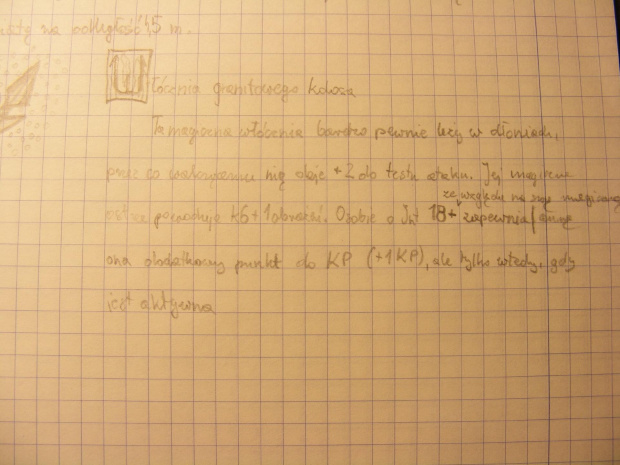 na odległość 1,5 m.
Włócznia granitowego kolosa
Ta magiczna włócznia bardzo pewnie leży w dłoniach,
przez co walczenie nią daje +2 do testu ataku. Jej magiczne
ze względu na swą
ostrze powoduje k6+1 obrażeń. Osobie o Int 18+ zapewnia
ona dodatkowy punkt do KP (+1 KP), ale tylko wtedy, gdy
jest aktywna